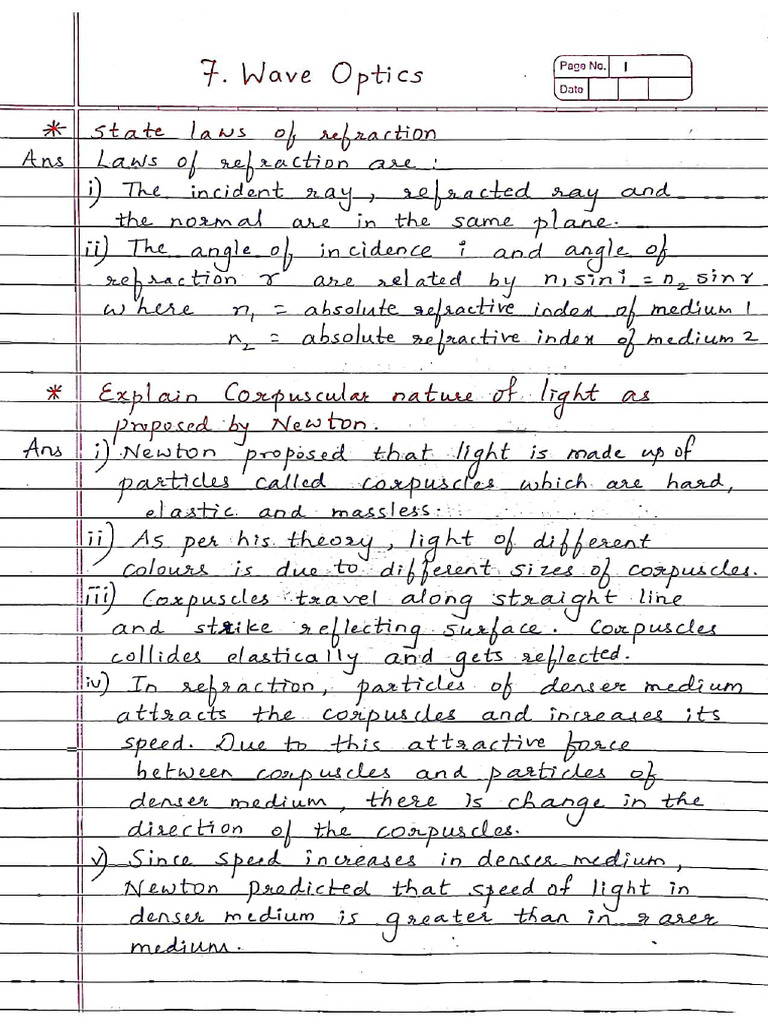 7. Wave Optics
Page No. 1
Date
* State laws of refraction
Ans Laws of refraction are :
i) The incident ray, refracted ray and
the normal are in the same plane.
ii) The angle of incidence i and angle of
refraction r are related by n₁ sin i = n₂ sin r
where n₁ = absolute refractive index of medium 1
n₂ = absolute refractive index of medium 2
* Explain Corpuscular nature of light as
proposed by Newton.
Ans i) Newton proposed that light is made up of
particles called corpuscles which are hard,
elastic and massless.
ii) As per his theory, light of different
colours is due to different sizes of corpuscles.
iii) Corpuscles travel along straight line
and strike reflecting surface. Corpuscles
collides elastically and gets reflected.
iv) In refraction, particles of denser medium
attracts the corpuscles and increases its
speed. Due to this attractive force
between corpuscles and particles of
denser medium, there is change in the
direction of the corpuscles.
v) Since speed increases in denser medium,
Newton predicted that speed of light in
denser medium is greater than in rarer
medium.